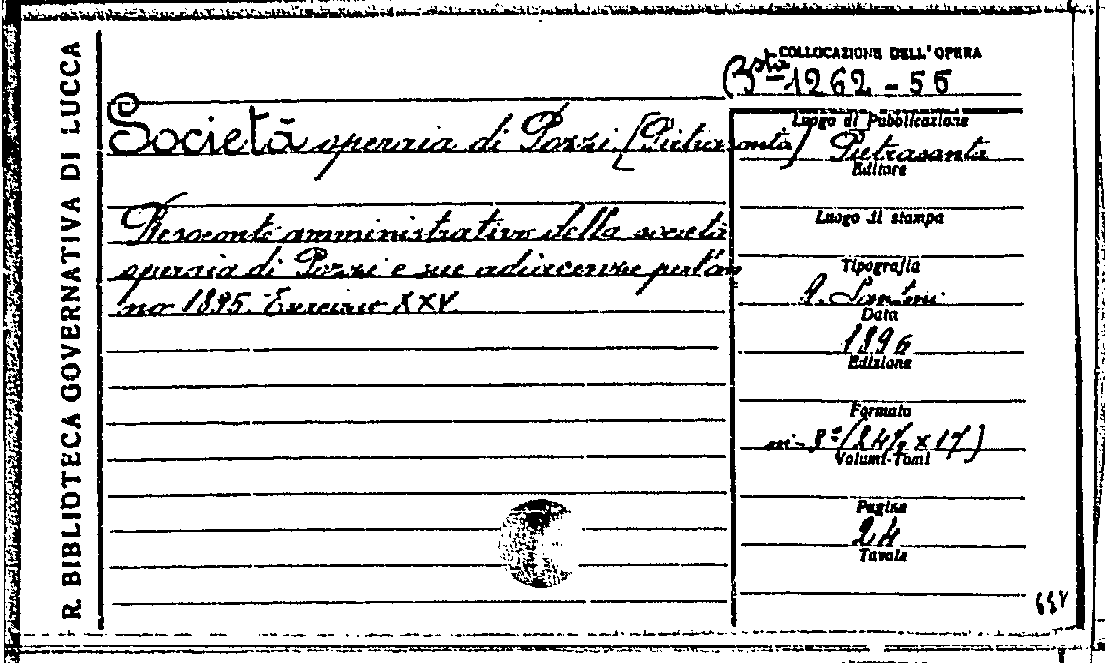 R. BIBLIOTECA GOVERNATIVA DI LUCCA
COLLOCAZIONE DELL'OPERA
Bsta 1262 - 55
Società operaia di Pozzi (Pietrasanta)
Resoconto amministrativo della società
operaia di Pozzi e sue adiacenze per l'an
no 1895. Esercizio XXV.
Luogo di Pubblicazione
Pietrasanta
Editore
Luogo di stampa
Tipografia
Santini
Data
1896
Edizione
Formato
in-8° (24½ x 17)
Volumi-Tomi
Pagine
24
Tavole